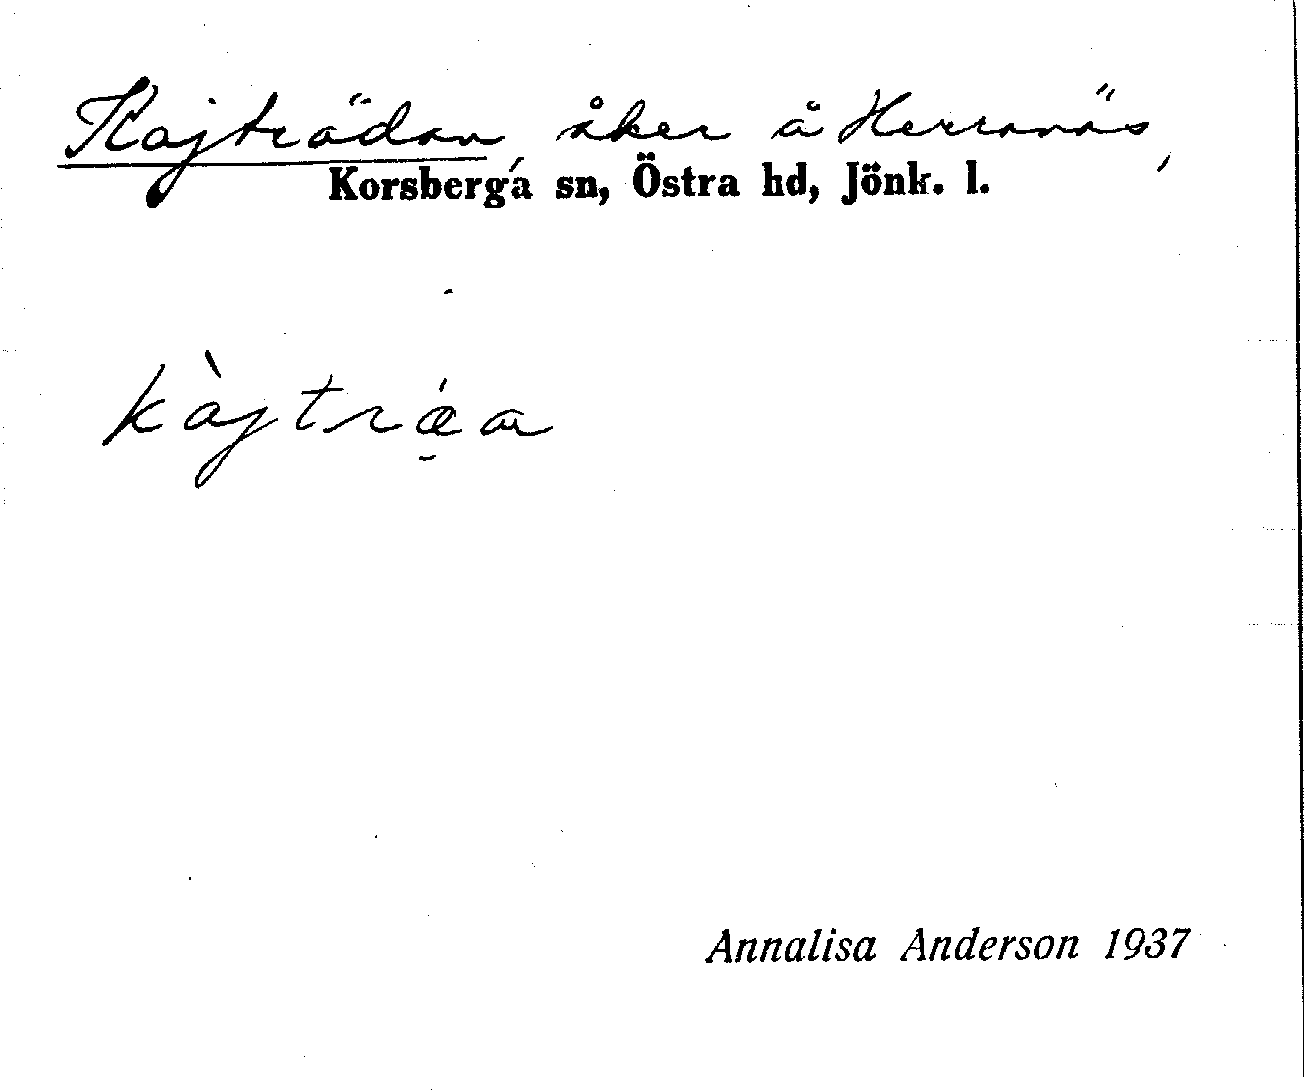 Kajträdan, åker å Herranäs,
Korsberga sn, Östra hd, Jönk. l.
kàjtrǽ̠a
Annalisa Anderson 1937